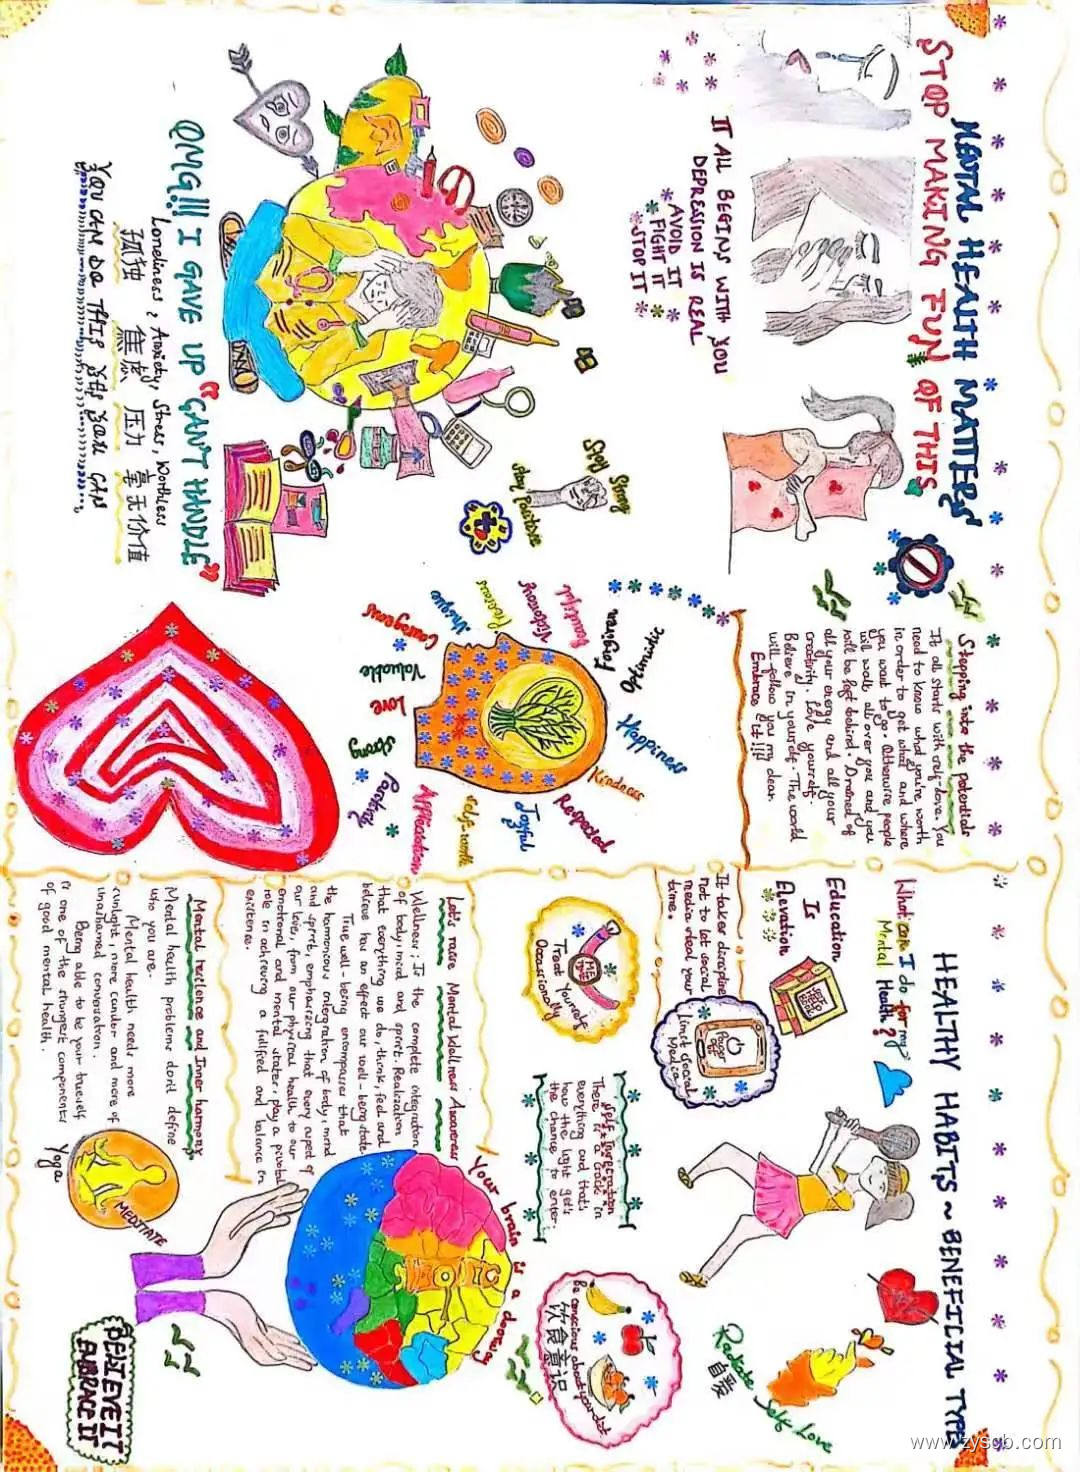 MENTAL HEALTH MATTERS
STOP MAKING FUN OF THIS
IT ALL BEGINS WITH YOU
DEPRESSION IS REAL
AVOID IT
FIGHT IT
STOP IT
Stay Strong
Stay Positive
OMG!!! I GAVE UP "CAN'T HANDLE"
Loneliness, Anxiety, Stress, Worthless
孤独 焦虑 压力 毫无价值
YOU CAN DO THIS YES YOU CAN
Stepping into the potential
It all starts with self-love. You
need to know what you're worth
in order to get what and where
you want to go. Otherwise people
will walk all over you and you
will be left behind. Drained of
all your energy and all your
creativity. Love yourself.
Believe in yourself. The world
will follow you my dear
Embrace it!!!
Optimistic
Forgiven
Beautiful
Unique
Courageous
Valuable
Love
Strong
Happiness
Kindness
Respected
Joyful
Self-worth
HEALTHY HABITS ~ BENEFICIAL TYPE
What can I do for my
Mental Health?
Education
Is
Elevation
SELF HELP
It takes discipline
not to let social
media steal your
time.
Power off
Limit Social
Media
ME TIME
Treat Yourself
Occassionally
There is a crack in
everything and that's
how the light get's
the chance to enter.
Radiate Self Love
自爱
Be conscious about your diet
饮食意识
Let's raise Mental Wellness Awareness
Wellness; Is the complete integration
of body, mind and spirit. Realization
that everything we do, think, feel and
believe has an effect our well-being state
True well-being encompasses that
the harmonious intergration of body, mind
and spirit, emphasizing that every aspect of
our lives, from our physical health to our
emotional and mental states, play a pivotal
role in achieving a fullfied and balance in
existence.
Your brain is a doorway
Mental resilence and Inner harmony
Mental health problems dont define
who you are.
Mental health needs more
sunlight, more candor and more of
unashamed conversation.
Being able to be your trueself
is one of the strongest components
of good mental health.
MEDITATE
Yoga
BELIEVE IT
EMBRACE IT
www.zyscb.com